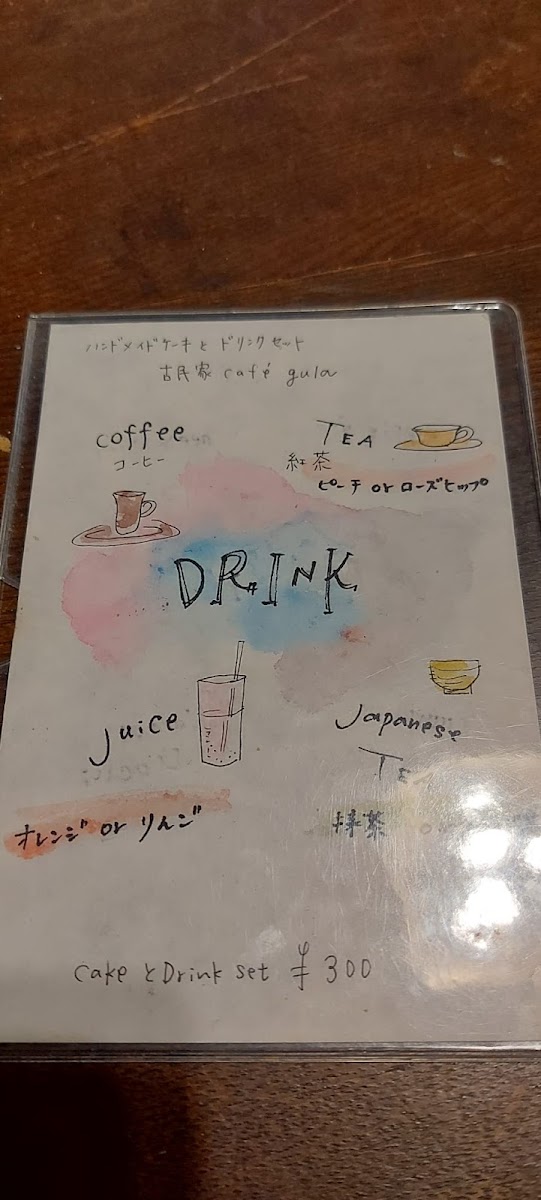 ハンドメイドケーキとドリンクセット
古民家 café gula
coffee
コーヒー
TEA
紅茶
ピーチ or ローズヒップ
DRINK
Juice
オレンジ or りんご
Japanese
TE
抹茶
Cake とDrink set ¥300